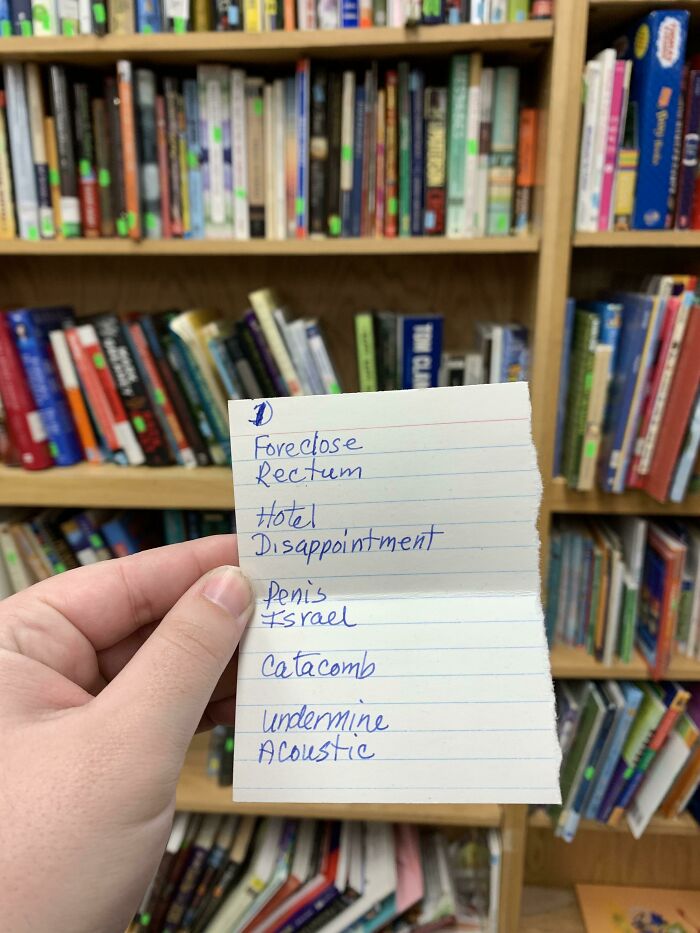 TOM CLAN
1
Foreclose
Rectum
Hotel
Disappointment
Penis
Israel
Catacomb
undermine
Acoustic